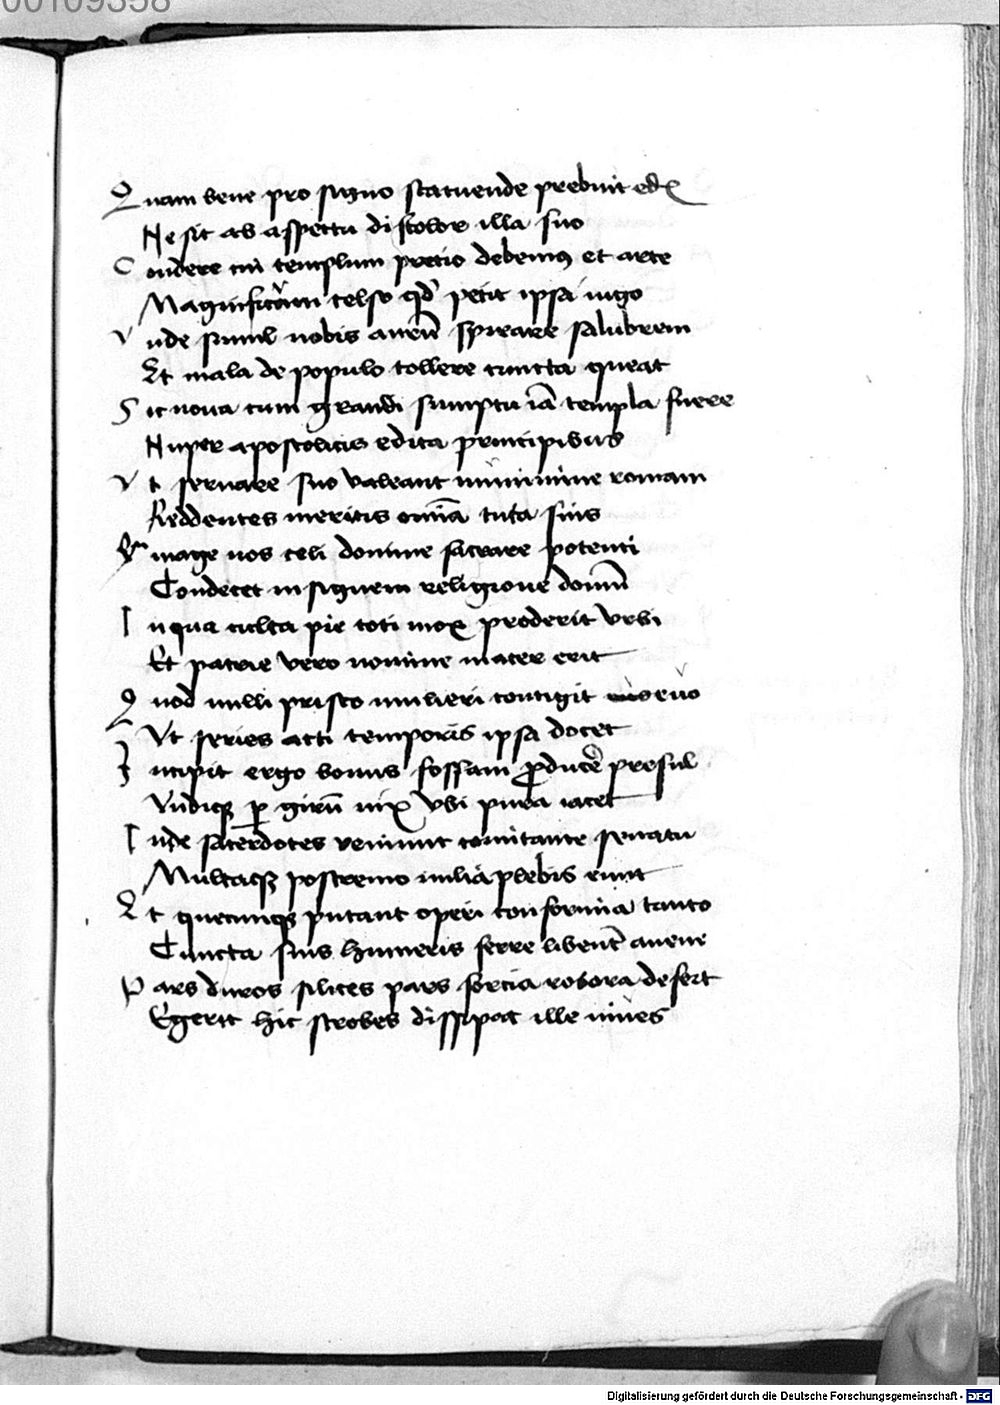 00109358
Quam bene pro signo statuende prebuit edẽ
Ne sit ab aspectu discolor illa suo
Condere cui templum precio debemus et arte
Magnificum celso qd' petit ipsa iugo
Unde simul nobis auram spirare salubrem
Et mala de populo tollere cuncta queat
Sic noua cum grandi sumptu iā templa fuere
Nuper apostolicis edita principibus
Ut seruare suo valeant munimine romam
Reddentes meritis omīa tuta suis
mage nos celi domine sacrare potenti
Condecet insignem religione domū
In qua culta pie toti mox proderit vrbi
Et patrie vero nomine mater erit
Quod nulli prisco mulieri contigit euo
Ut series acti temporis ipsa docet
Incipit ergo bonus fossam ꝓducẽ presul
Undiqȝ ꝑ girū nix vbi pura iacet
Inde sacerdotes veniunt comitante senatu
Multaqȝ postremo milia plebis eunt
Et quecunqȝ putant operi conformia tanto
Cuncta suis humeris ferre libent auene
Pars duros silices pars forcia robora defert
Egerit hic scrobes dissipat ille niues
Digitalisierung gefördert durch die Deutsche Forschungsgemeinschaft - DFG